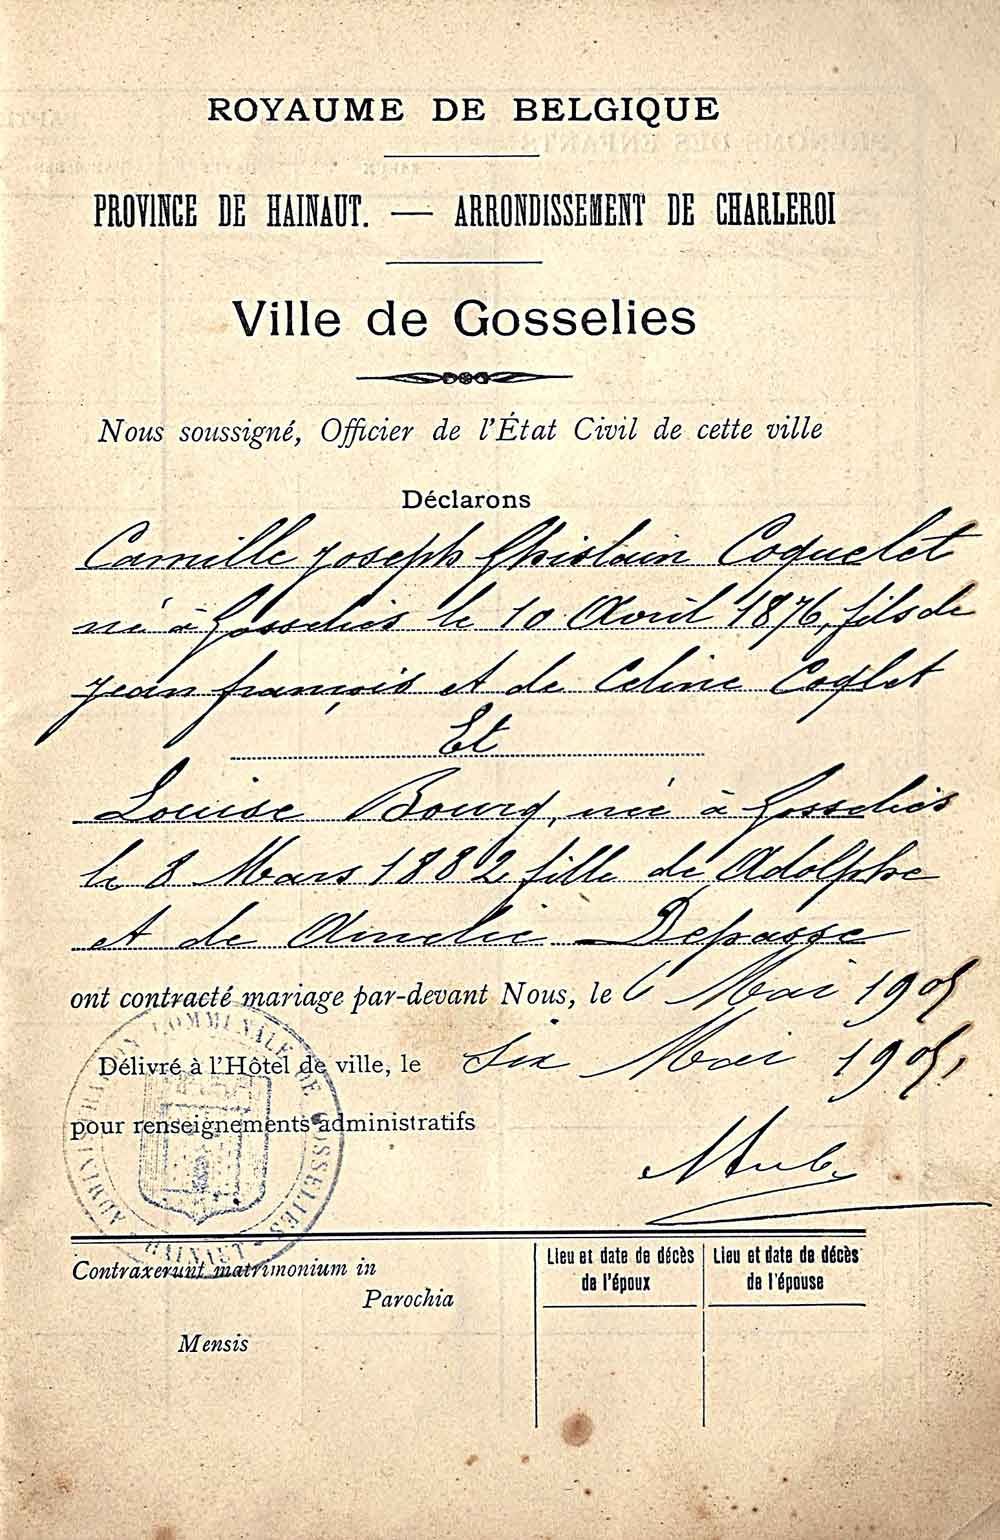 ROYAUME DE BELGIQUE
PROVINCE DE HAINAUT. — ARRONDISSEMENT DE CHARLEROI
Ville de Gosselies
Nous soussigné, Officier de l'État Civil de cette ville
Déclarons
Camille Joseph Ghislain Coquelet
né à Gosselies le 10 Avril 1876, fils de
Jean françois et de Celine Coglet
Et
Louise Bourg, née à Gosselies
le 8 Mars 1882, fille de Adolphe
et de Amelie Depasse
ont contracté mariage par-devant Nous, le 6 Mai 1905
Délivré à l'Hôtel de ville, le six Mai 1905,
pour renseignements administratifs
ADMINISTRATION COMMUNALE DE GOSSELIES - HAINAUT -
Contraxerunt matrimonium in
Parochia
Mensis
Lieu et date de décès de l'époux
Lieu et date de décès de l'épouse